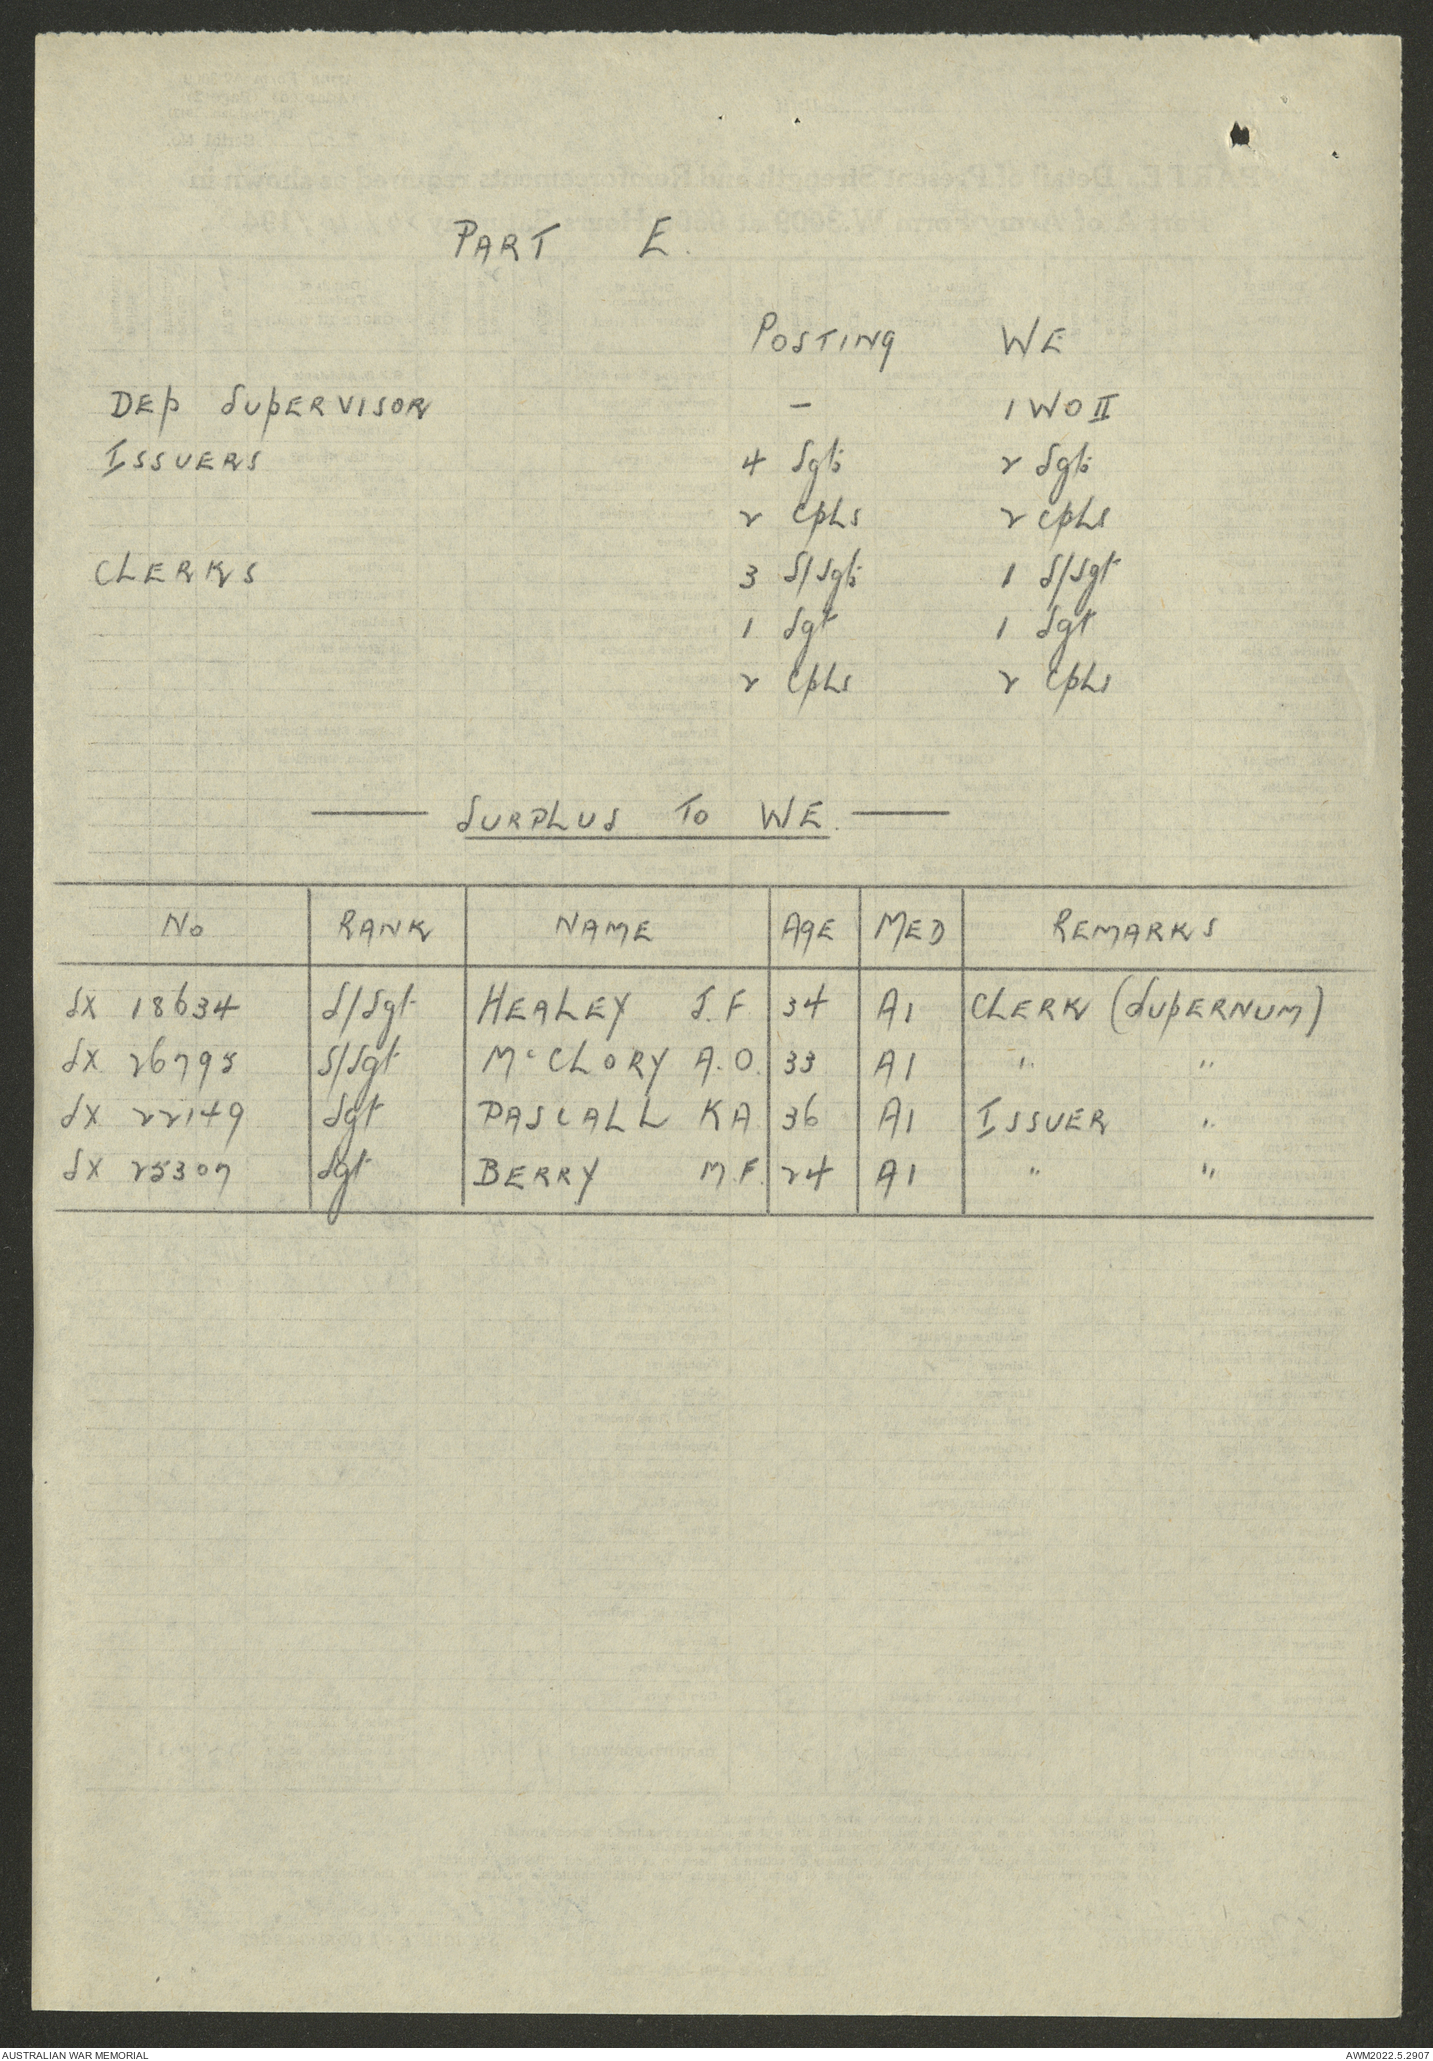 PART E.
POSTING WE
DEp SUpERVISOR — 1 WO II
ISSUERS 4 Sgts 2 Sgts
2 cpLs 2 cpLs
CLERKS 3 S/Sgts 1 S/Sgt
1 Sgt 1 Sgt
2 cpLs 2 cpLs
SURPLUS TO WE.
No RANK NAME AGE MED REMARKS
SX 18634 S/Sgt HEALEY J.F. 34 A1 CLERK (SUpERNUM)
SX 26795 S/Sgt McCLORY A.O. 33 A1 " "
SX 22149 Sgt PASCALL KA 36 A1 ISSUER "
SX 25307 Sgt BERRY M.F. 24 A1 " "
AUSTRALIAN WAR MEMORIAL AWM2022.5.2907